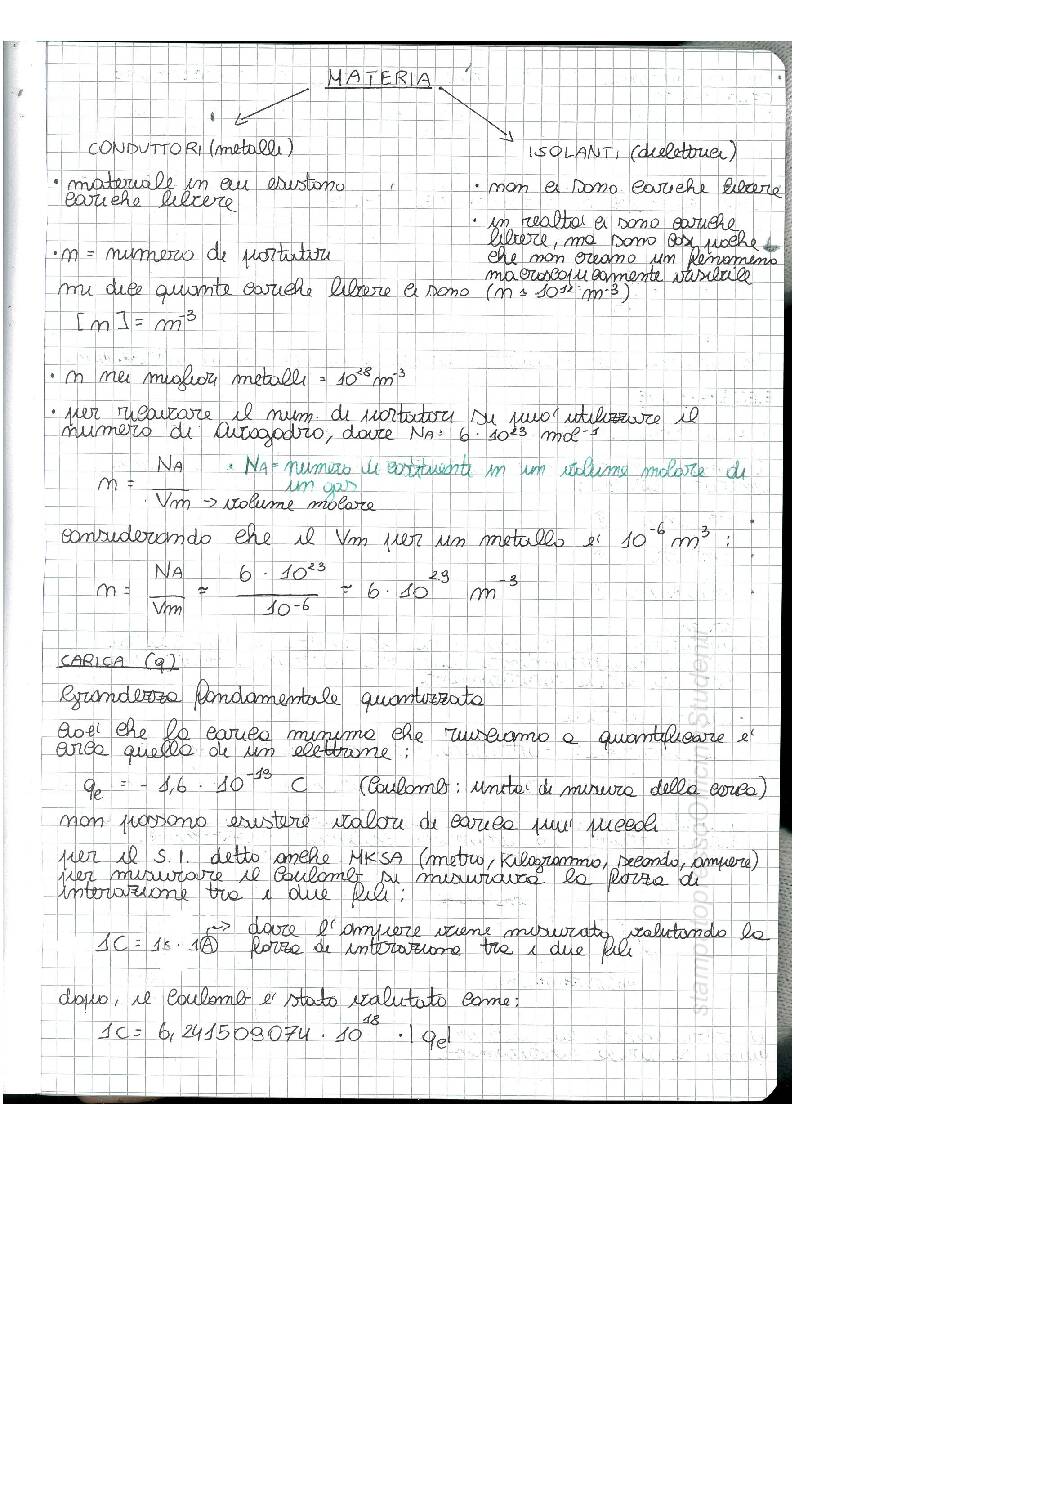 MATERIA
CONDUTTORI (metalli)
ISOLANTI (dielettrici)
• materiale in cui esistono
cariche libere
• non ci sono cariche libere
• in realtà ci sono cariche
libere, ma sono così poche
che non creano un fenomeno
macroscopicamente visibile
• n = numero di portatori
mi dice quante cariche libere ci sono (n ≤ 10¹² m⁻³)
[n] = m⁻³
• n nei migliori metalli = 10²⁸ m⁻³
• per ricavare il num. di portatori si può utilizzare il
numero di Avogadro, dove NA = 6 · 10²³ mol⁻¹
n = NA / Vm → volume molare
• NA = numero di costituenti in un volume molare di
un gas
considerando che il Vm per un metallo è 10⁻⁶ m³ :
n = NA / Vm = 6 · 10²³ / 10⁻⁶ = 6 · 10²⁹ m⁻³
CARICA (q)
Grandezza fondamentale quantizzata
cioè che la carica minima che riusciamo a quantificare è
circa quella di un elettrone :
qe = - 1,6 · 10⁻¹⁹ C (Coulomb : unità di misura della carica)
non possono esistere valori di carica più piccoli
per il S.I. detto anche MKSA (metro, kilogrammo, secondo, ampere)
per misurare il Coulomb si misurava la forza di
interazione tra i due fili :
1C = 1s · 1A
→ dove l'ampere viene misurato valutando la
forza di interazione tra i due fili
dopo, il Coulomb è stato valutato come :
1C = 6,241509074 · 10¹⁸ · |qe|
stampatopressoOfficinaStudenti